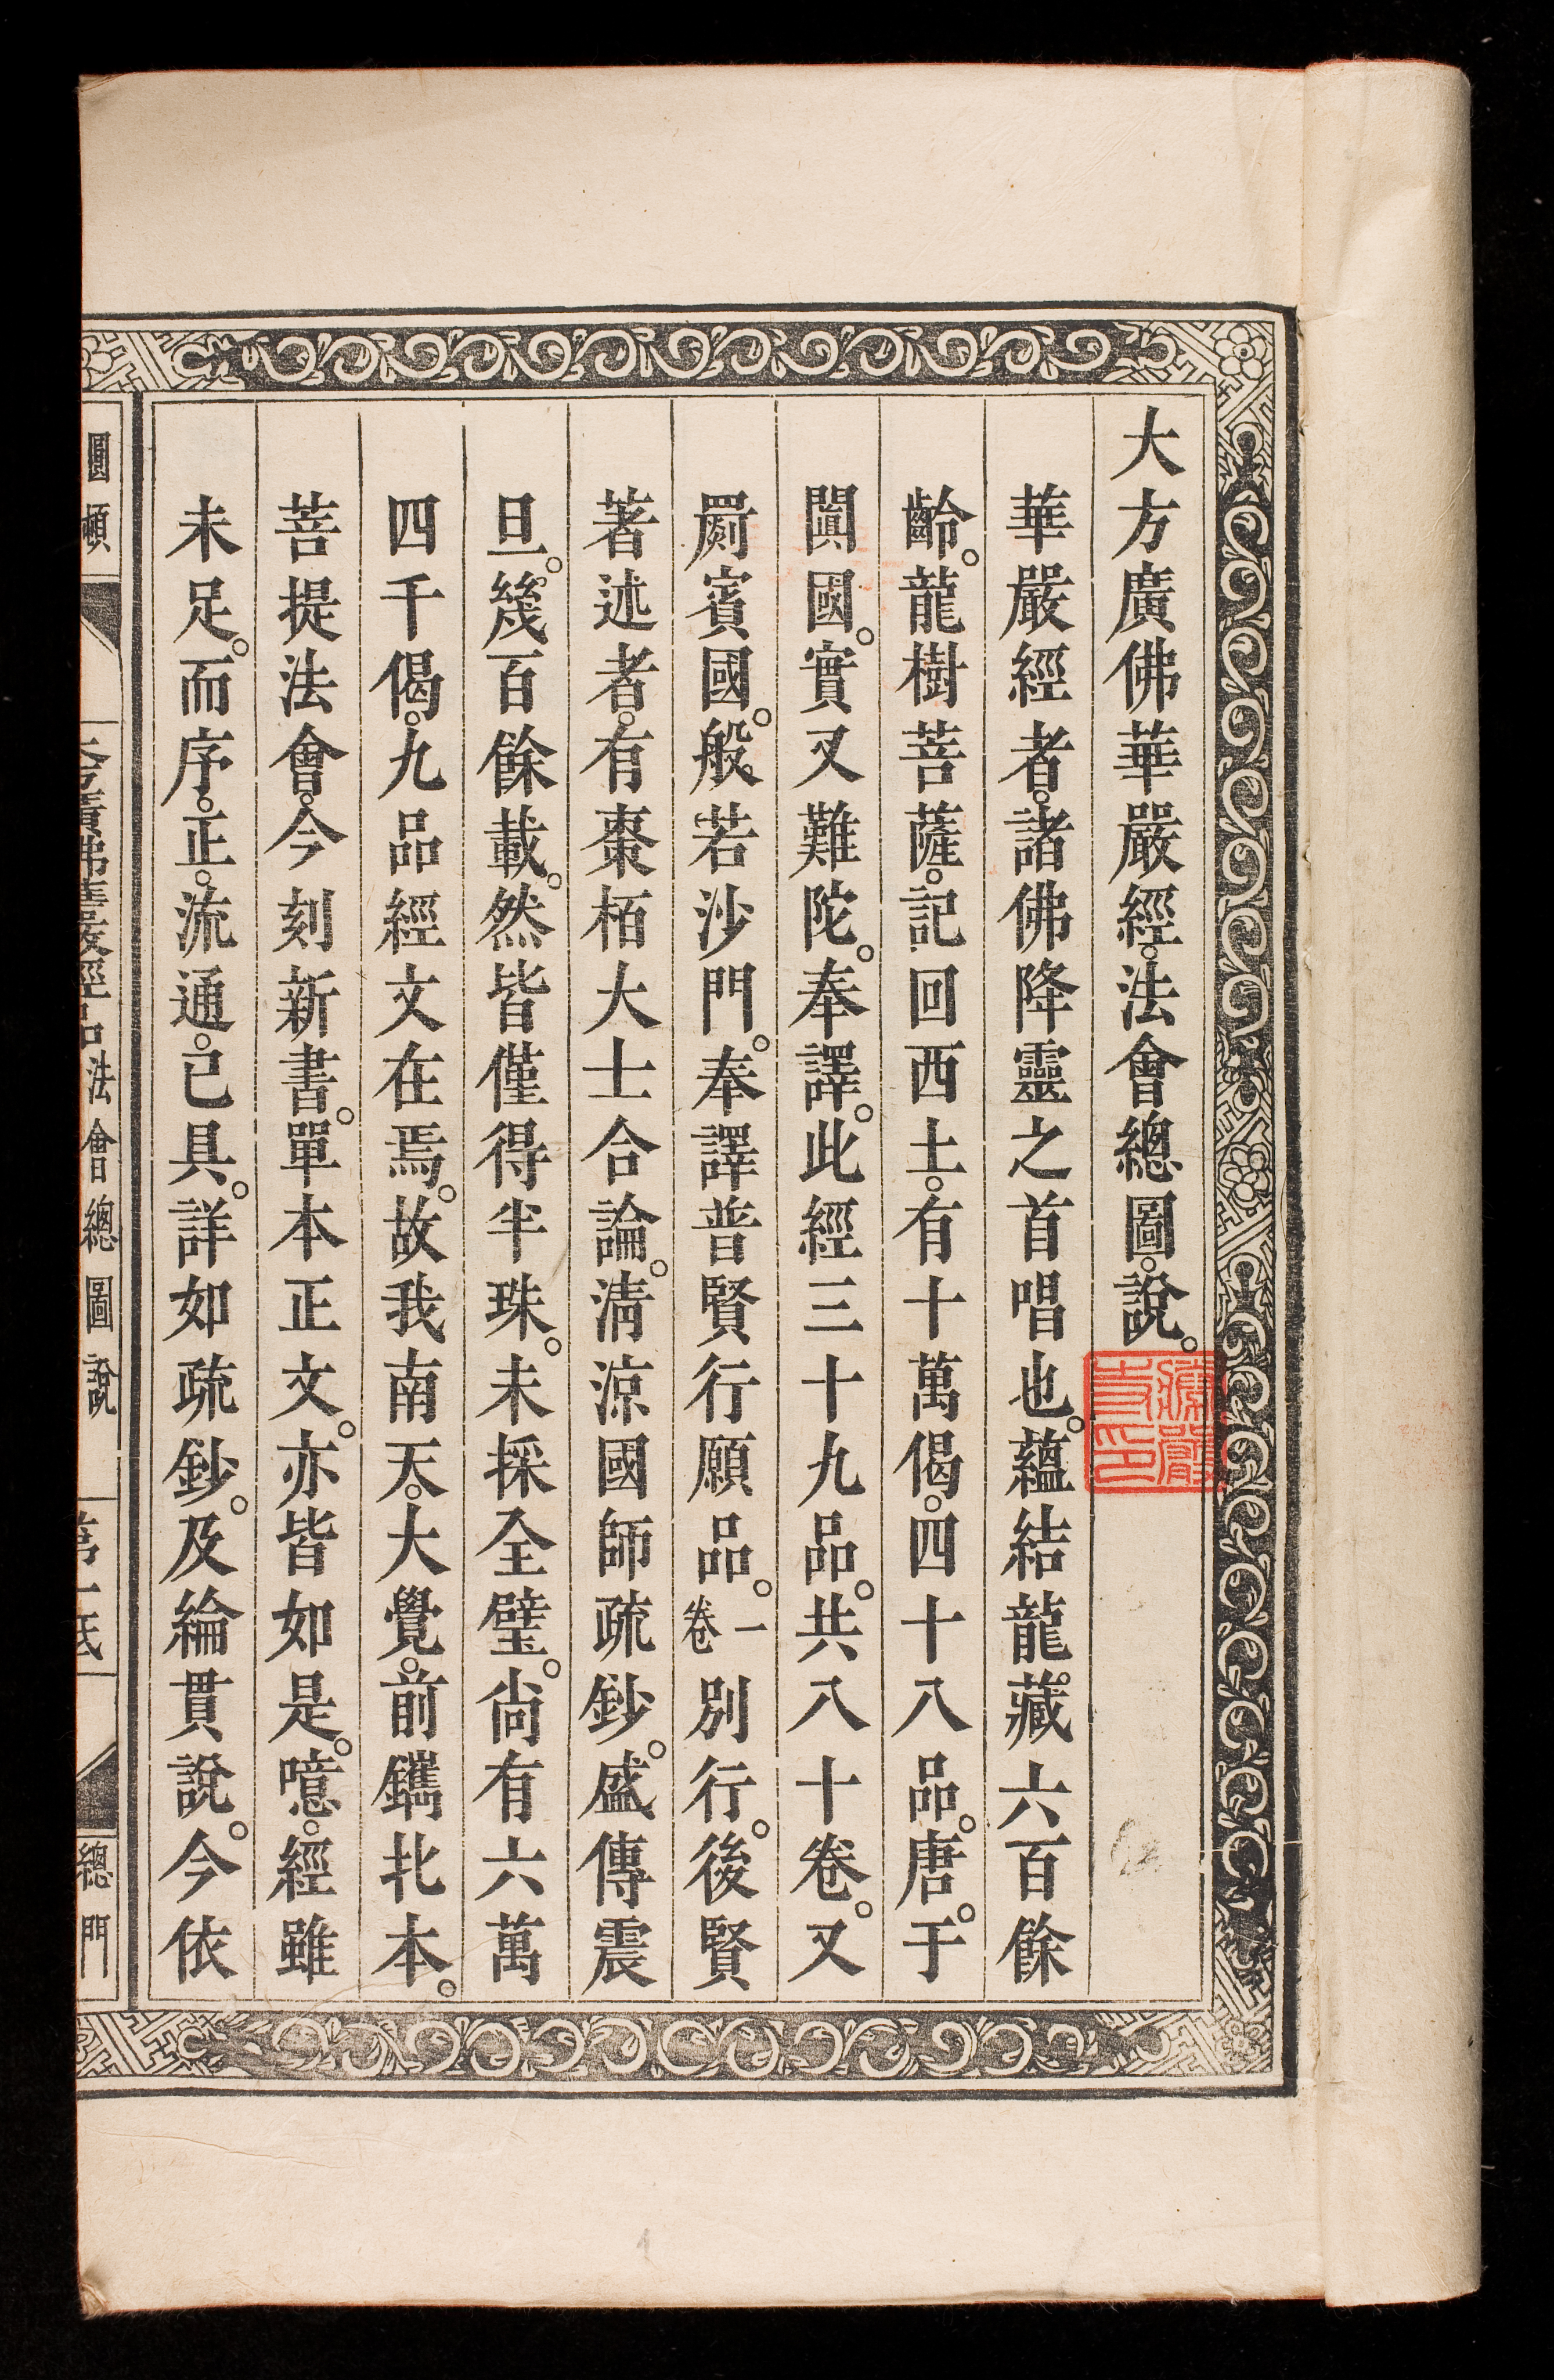 大方廣佛華嚴經。法會總圖。說。
華嚴經者。諸佛降靈之首唱也。蘊結龍藏。六百餘
齡。龍樹菩薩。記回西土。有十萬偈。四十八品。唐。于
闐國。實叉難陀。奉譯。此經三十九品。共八十卷。又
罽賓國。般若沙門。奉譯普賢行願品。一卷別行。後賢
著述者。有棗栢大士合論。淸涼國師疏鈔。盛傳震
旦。幾百餘載。然皆僅得半珠。未採全璧。尙有六萬
四千偈。九品經文在焉。故我南天。大覺。前鐫北本。
菩提法會。今刻新書。單本正文。亦皆如是。噫。經雖
未足。而序。正。流通。已具。詳如疏鈔。及綸貫說。今依
圓頓 大方廣佛華嚴經品法會總圖說 第一紙 總門